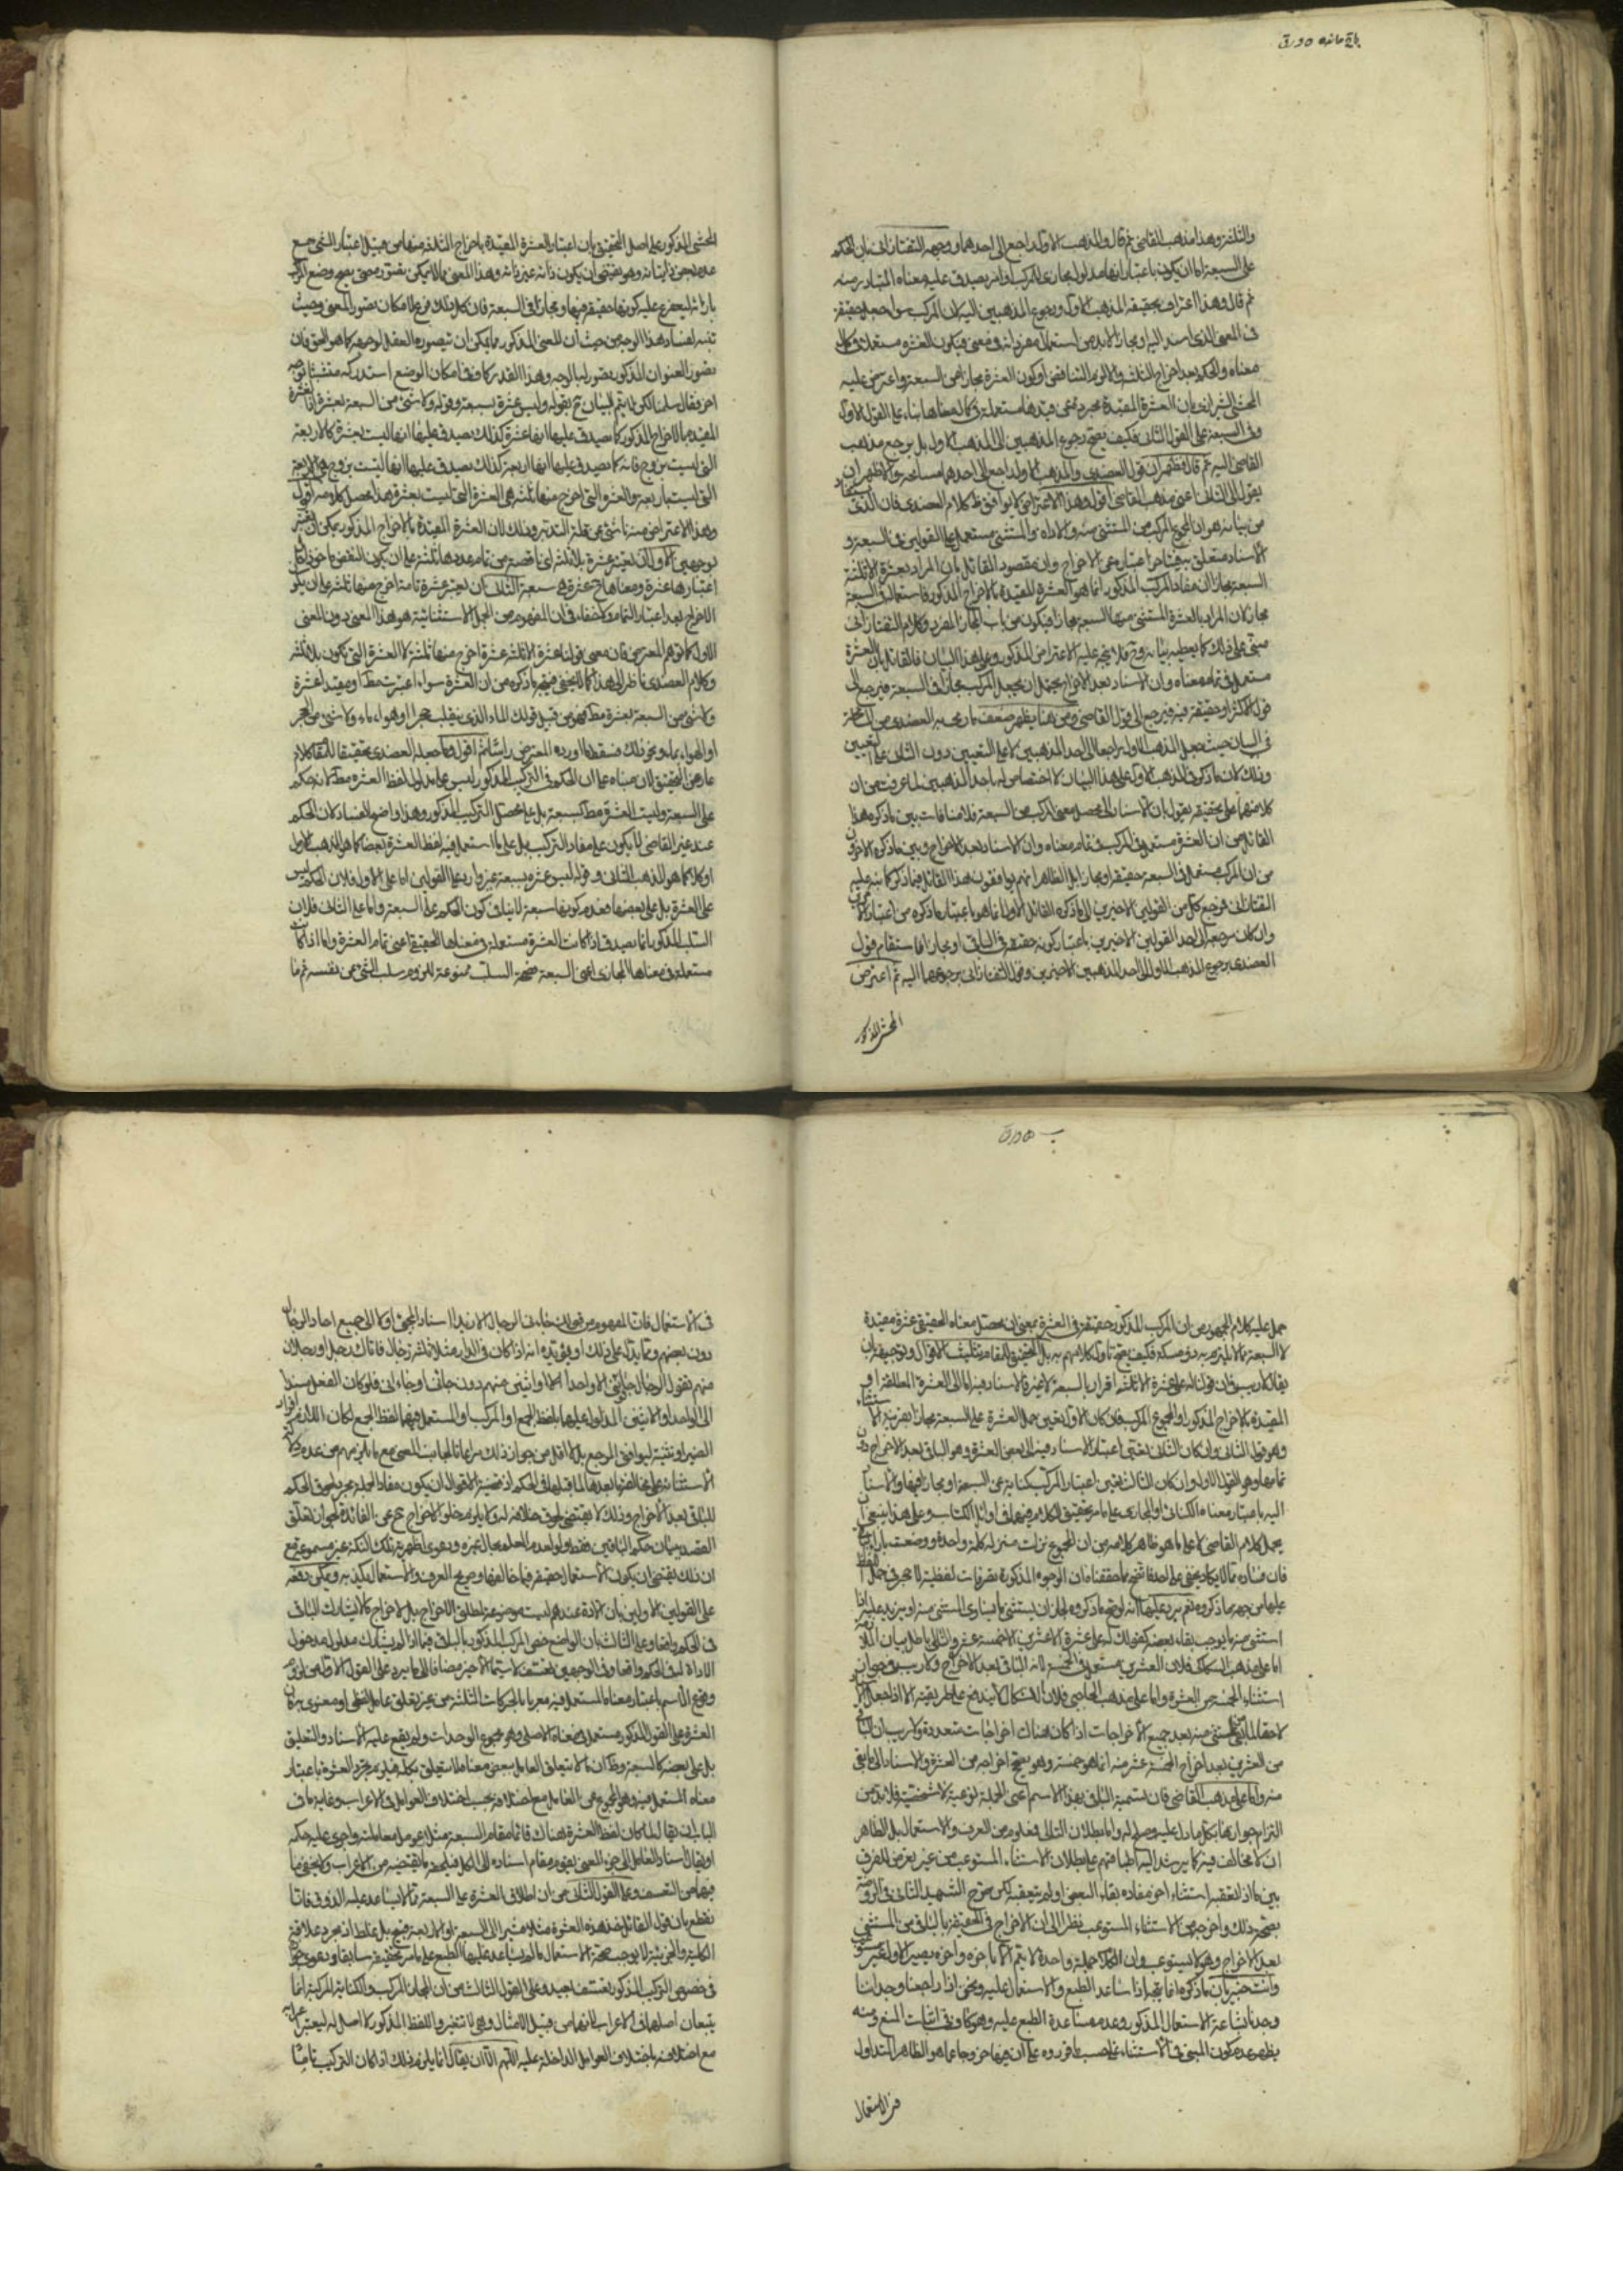 باقی مانده ٥ ورق
والثلثة وهذا مذهب القاضى ثم قال والمذهب الاول راجع الى احدهما ووجهه التفتازانى بان الحكم
على السبعة اما ان يكون باعتبار انها مدلول مجازى للمركب او امر يصدق عليه معناه المتبادر منه
ثم قال وهذا اعتراف بحقيقة المذهب الاول ورجوع المذهبين اليه لان المركب سواء جعل حقيقة
فى المعنى الذى اسند اليه او مجازا لابد من استعمال مفرداته فى معنى فيكون العشرة مستعملة فى كمال
معناه والحكم بعد اخراج الثلثة والا لزم التناقض او كون العشرة مجازا عن السبعة واعترض عليه
المحشى الشيرازى بان العشرة المقيدة بمجرد معنى قيدها مستعملة فى كمال معناها بناء على القول الاول
وفى السبعة على القول الثانى فكيف يصح رجوع المذهبين الى المذهب الاول بل يرجع مذهب
القاضى اليه ثم قال فظهر ان قول العضدى والمذهب الاول راجع الى احدهما مسامحة والاظهر ان
يقول الى الثانى اعنى مذهب القاضى اقول وهذا الاعتراض لا يوافق ظ كلام العضدى فان الذى يستفاد
من بيانه هو ان المجموع المركب من المستثنى منه والاداة والمستثنى مستعمل على القولين فى السبعة و
الاسناد متعلق بـ باعتبار معنى الاخراج وان مقصود القائل بان المراد بعشرة الا ثلثة
السبعة مجازا ان مفاد المركب المذكور انما هو العشرة المقيدة بالاخراج المذكور فاستعماله فى السبعة
مجاز لا ان المراد بالعشرة المستثنى منها السبعة مجازا فيكون من باب المجاز المفرد وكلام التفتازانى
مبنى على ذلك كما يعطيه بيانه وح فلا يتجه عليه الاعتراض المذكور وعلى هذا البيان فالقائل بان العشرة
مستعمل فى تمام معناه وان الاسناد بعد الاخراج يحتمل ان يجعل المركب مجازا فى السبعة فيرجع الى
قول الاكثر او حقيقة فيه فيرجع الى قول القاضى ومن هنا يظهر ضعف ما رجحه العضدى من
فى البيان حيث جعل المذهب الاول راجعا الى احد المذهبين لا على التعيين دون الثانى على التعيين
وذلك لان ما ذكره فى المذهب الاول على هذا البيان لا اختصاص له باحد المذهبين لما عرفت من ان
كلا منهما على حقيقة يقول بان الاسناد الى محصل معنى المركب من السبعة فلا منافات بين ما ذكره هذا
القائل من ان العشرة مستعمل فى المركب فى تمام معناه وان الاسناد بعد الاخراج وبين ما ذكره الاخرون
من ان المركب مستعمل فى السبعة حقيقة او مجازا بل الظاهر انهم يوافقون هذا القائل فيما ذكر كما نبه عليه
التفتازانى فرجع كل من القولين الاخيرين الى ما ذكره القائل الاول انما هو باعتبار ما ذكره من اعتبار
وان كان مرجعه الى احد القولين الاخيرين باعتبار كونه حقيقة فى الباقى او مجازا فاستقام قول
العضدى برجوع المذهب الاول الى احد المذهبين الاخيرين وقول التفتازانى برجوعهما اليه ثم اعترض
المحشى المذكور
المحشى المذكور على اصل التحقيق بان اعتبار العشرة المقيدة باخراج الثلثة منها من قبيل اعتبار الشىء مع
عدم بعض ذاتياته وهو يقتضى ان يكون ذاته غير ذاته وهذا المعنى مما لا يمكن تصوره حتى يصح وضع المركب
بازائه ليتفرع عليه كونها حقيقة فيها او مجازا فى السبعة فان كل ذلك فرع امكان تصور المعنى وحيث
تنبه لفساد هذا الوجه من حيث ان المعنى المذكور مما يمكن ان تيصوره العقل لوجهه كما هو الحق فان
تصور العنوان المذكور تصور له بالوجه وهذا القدر كاف فى امكان الوضع استدركه متشبثا بوجه
اخر فقال سلمنا لكن لا يتم البيان ح بقوله وليس عشرة بسبعة وقوله ولا شىء من السبعة بعشرة اذ العشرة
المقيده بالاخراج المذكور كما يصدق عليها انها عشرة كذلك يصدق عليها انها ليست بعشرة كالاربعة
التى ليست بزوج فانه كما يصدق عليها انها اربعة كذلك يصدق عليها انها ليست بزوج هى الاربعة
التى ليست باربعة والعشرة التى اخرج منها ثلثة هى العشرة التى ليست بعشرة هذا محصل كلامه اقول
وهذا الاعتراض منه ناش عن قلة التدبر وذلك لان العشرة المقيدة بالاخراج المذكور يمكن ان يعتبر
بوجهين الاول ان يعتبر عشرة بلا ثلثة اى ناقصة من تمام عددها ثلثة على ان يكون النقص ماخوذا قبل
اعتبارها عشرة ومعناها ح عشرة هى سبعة الثانى ان يعتبر عشرة تامة اخرج منها ثلثة على ان يكون
الاخراج بعد اعتبار التمام ولا خفاء فى ان المفهوم من الجمل الاستثنائية هو هذا المعنى دون المعنى
الاول كما توهم المعترض فان معنى قولنا عشرة الا ثلثة عشرة اخرج منها ثلثة لا العشرة التى تكون بلا ثلثة
وكلام العضدى ناظر الى هذا كما لا يخفى فيتجه ما ذكره من ان العشرة سواء اعتبرت مطلقا او مقيدا عشرة
ولا شىء من السبعة بعشرة مط فهو من قبيل قولك الماء الذى ينقلب حجرا او هواء ماء ولا شىء من الحجر
او الهواء بماء ونحو ذلك فسقط ما اورده المعترض راسا ثم اقول وما جعله العضدى تحقيقا للمقام كلام
عار عن التحقيق لان مبناه على ان الحكم فى التركيب المذكور ليس على مدلول لفظ العشره مط لانه حكم
على السبعة وليست العشرة مط كسبعة بل على محصل التركيب المذكور وهذا واضح الفساد لان الحكم
عند غير القاضى لا يكون على مفاد التركيب بل على ما استعمل فيه لفظ العشرة بعضا كما هو المذهب الاول
او كلا كما هو المذهب الثانى وقوله ليس عشرة بسبعة غير وارد على القولين اما على الاول فلان الحكم ليس
على العشرة بل على بعضها فعدم كونها سبعة لا ينافى كون الحكم على السبعة واما على الثانى فلان
السلب المذكور انما يصدق اذا كانت العشرة مستعملة فى معناها الحقيقى اعنى تمام العشرة واما اذا كانت
مستعملة فى معناها المجازى اعنى السبعة صحة السلب ممنوعة للزوم سلب الشىء عن نفسه ثم ما
ب ٥ ورق
حمل عليه كلام الجمهور من ان المركب المذكور حقيقة فى العشرة بمعنى ان محصل معناه الحقيقى عشرة مقيدة
لا السبعة مما لا يلتزم به ذو مسكة فكيف يصح تاويل كلامهم به بل التحقيق للمقام تثليث الاقوال وتوجيهه ان
يقال لا ريب فى ان قول له على عشرة الا ثلثة اقرار بالسبعة لا غير فالاسناد فيه اما الى العشرة المطلقة او
المقيدة بالاخراج المذكور او المجموع المركب فان كان الاول تعين حمل العشرة على السبعة مجازا بقرينة الاستثناء
وهو قول الثانى وان كان الثانى تعين اعتبار الاسناد فيه الى بعض العشرة وهو الباقى بعد الاخراج دون
تمامها وهو القول الاول وان كان الثالث تعين اعتبار المركب كناية عن السبعة او مجازا فيها والاسناد
اليه باعتبار معناه الكنائى او المجازى على ما مر تحقيق الكلام فيهما فى اوائل الكتاب وعلى هذا ينبغى ان
يحمل كلام القاضى لا على ما هو ظاهر كلامه من ان المجموع نزلت منزلة كلمة واحدة ووضعت بازاء الباقى
فان فساده مما لا يكاد يخفى على احد فاتضح بما حققناه ان الوجوه المذكورة تصرفات لفظية لا محرفى حمل اللفظ
عليها من جهة ما ذكروه نعم يرد عليها انه لو صح ما ذكروه لجاز ان يستثنى ما يساوى المستثنى منه او يزيد عليه اذا
استثنى منه ما يوجب بقاء بعضه كقولك له على عشرة الا عشرين الا خمسة عشر والتالى باطل بيان الملازمة
اما على مذهب السكاكى فلان العشرين مستعمل فى الخمسة لانه الباقى بعد الاخراج ولا ريب فى جواز
استثناء الخمسة من العشرة واما على مذهب الحاجبى فلان الاشكال لا يندفع على طريقته الا اذا جعل الاسناد
لاحقا لما بقى من المستثنى منه بعد جميع الاخراجات اذا كان هناك اخراجات متعددة ولا ريب ان الباقى
من العشرين بعد اخراج الخمسة عشر منه انما هو خمسة وهو يصح اخراجه من العشرة والاسناد الى ما بقى
منه واما على مذهب القاضى فلان تسمية الباقى بهذا الاسم اعنى الجملة نوعية لا شخصية فلا بد من
التزام جوازها بكل ما دل عليه وصلح له واما بطلان التالى فمعلوم من العرف والاستعمال بل الظاهر
ان لا مخالف فيه كما يرشد اليه اطباقهم على بطلان الاستثناء المستوعب من غير تعرض للفرق
بين ما اذا تعقبه استثناء اخر مفاده بقاء البعض او لم يتعقبه لكن صرح الشهيد الثانى فى الروضة
بصحة ذلك واخرجه من الاستثناء المستوعب نظرا الى ان الاخراج فى الحقيقة بالباقى من المستثنى
بعد الاخراج وهو لا يستوعب وان الكلام جملة واحدة لا يتم الا باخره واخره يصير الاول غير مستوعب
وانت خبير بان ما ذكره انما يتجه اذا ساعد الطبع والاستعمال عليه ونحن اذا راجعنا وجداننا
وجدنا شناعة الاستعمال المذكور وعدم مساعدة الطبع عليه وهو كاف فى اثبات المنع ومنه
يظهر عدم كون المبنى فى الاستثناء على حسب ما قرروه على ان فيها خروجا عما هو الظاهر المتداول
فى الاستعمال
فى الاستعمال فان المفهوم من قولك جاءنى الرجال الا زيدا اسناد المجىء اولا الى جميع احاد الرجال
دون بعضهم ومما يدل على ذلك او يؤيده انه اذا كان فى الدار مثلا ثلثة رجال فاتاك رجل او رجلان
منهم تقول الرجال جاؤنى الا واحدا او الا اثنين منهم دون جاءنى او جاءانى فلو كان الفعل مسندا
الى الواحد او الاثنين المدلول عليها بلفظ الجمع او المركب او المستعمل فيهما لفظ الجمع لكان اللازم افراد
الضمير او تثنية ليوافق المرجع بل لا اقل من جواز ذلك مراعاة لجانب المعنى مع ما يلزمهم من عدم دلالة
الاستثناء على مخالفة ما بعدها لما قبلها فى الحكم اذ قضية الاقوال ان يكون مفاد الجملة مجرد لحوق الحكم
للباقى بعد الاخراج وذلك لا يقتضى لحوق خلافه له ولا يلزم خلو الاخراج ح عن الفائدة لجواز تعلق
القصد ببيان حكم الباقين فقط او لعدم العلم بحال غيره ودعوى اظهرية تلك النكتة غير مسموعة مع
ان ذلك يقتضى ان يكون الاستعمال حقيقة فيما خالفها وصريح العرف والاستعمال يكذبه ويمكن دفعه
على القولين الاولين بان الاداة عندهم ليست موضوعة لمطلق الاخراج بل لاخراج ما لا يشارك الباقى
فى الحكم واقعا وعلى الثالث بان الواضع خص المركب المذكور بالباقى فيما اذا لم يشارك مدلول مدخول
الاداة له فى الحكم واقعا وفى الوجهين تعسف لا سيما الاخير مضافا الى ما يرد على القول الاول من لزوم
وقوع الاسم باعتبار معناه المستعمل فيه معربا بالحركات الثلثة من غير تعلق عامل لفظى او معنوى به لان
العشرة على القول المذكور مستعمل فى معناه الاصلى وهو مجموع الوحدات ولم يقع عليه الاسناد والتعليق
بل على بعضه كالسبعة وظ ان ما لا يتعلق العامل ببعض معناه لا يتعلق بكله فيلزم تجرد العشرة باعتبار
معناه المستعمل فيه وهو المجموع عن العامل مع اختلافه بحسب اختلاف العوامل فى الاعراب وغاية ما فى
الباب ان يقال لما كان لفظ العشرة هناك قائما مقام السبعة مثلا عومل معاملته واجرى عليه حكمه
او يقال اسناد العامل الى جزء المعنى يقوم مقام اسناده الى الكل فيلحقه ما يقتضيه من الاعراب ولا يخفى ما
فيهما من التعسف وعلى القول الثانى من ان اطلاق العشرة على السبعة مما لا يساعد عليه الذوق فانا
نقطع بان قول القائل خذ هذه العشرة مثلا مشيرا الى السبعة او اربعة قبيح بل غلط اذ مجرد علاقة
الكلية والجزئية لا يوجب صحة الاستعمال ما لم يساعد عليها الطبع على ما مر تحقيقه سابقا ودعوى جوازه
فى خصوص التركيب المذكور تعسف بعيد وعلى القول الثالث من ان المجاز المركب والكناية المركبة انما
يتبعان اصلهما فى الاعراب لانهما من قبيل الامثال وهى لا تتغير واللفظ المذكور لا اصل له ليعتبر اعرابه
مع اختلافه باختلاف العوامل الداخلة عليه اللهم الا ان يقال انما يلزم ذلك اذا كان التركيب تاما